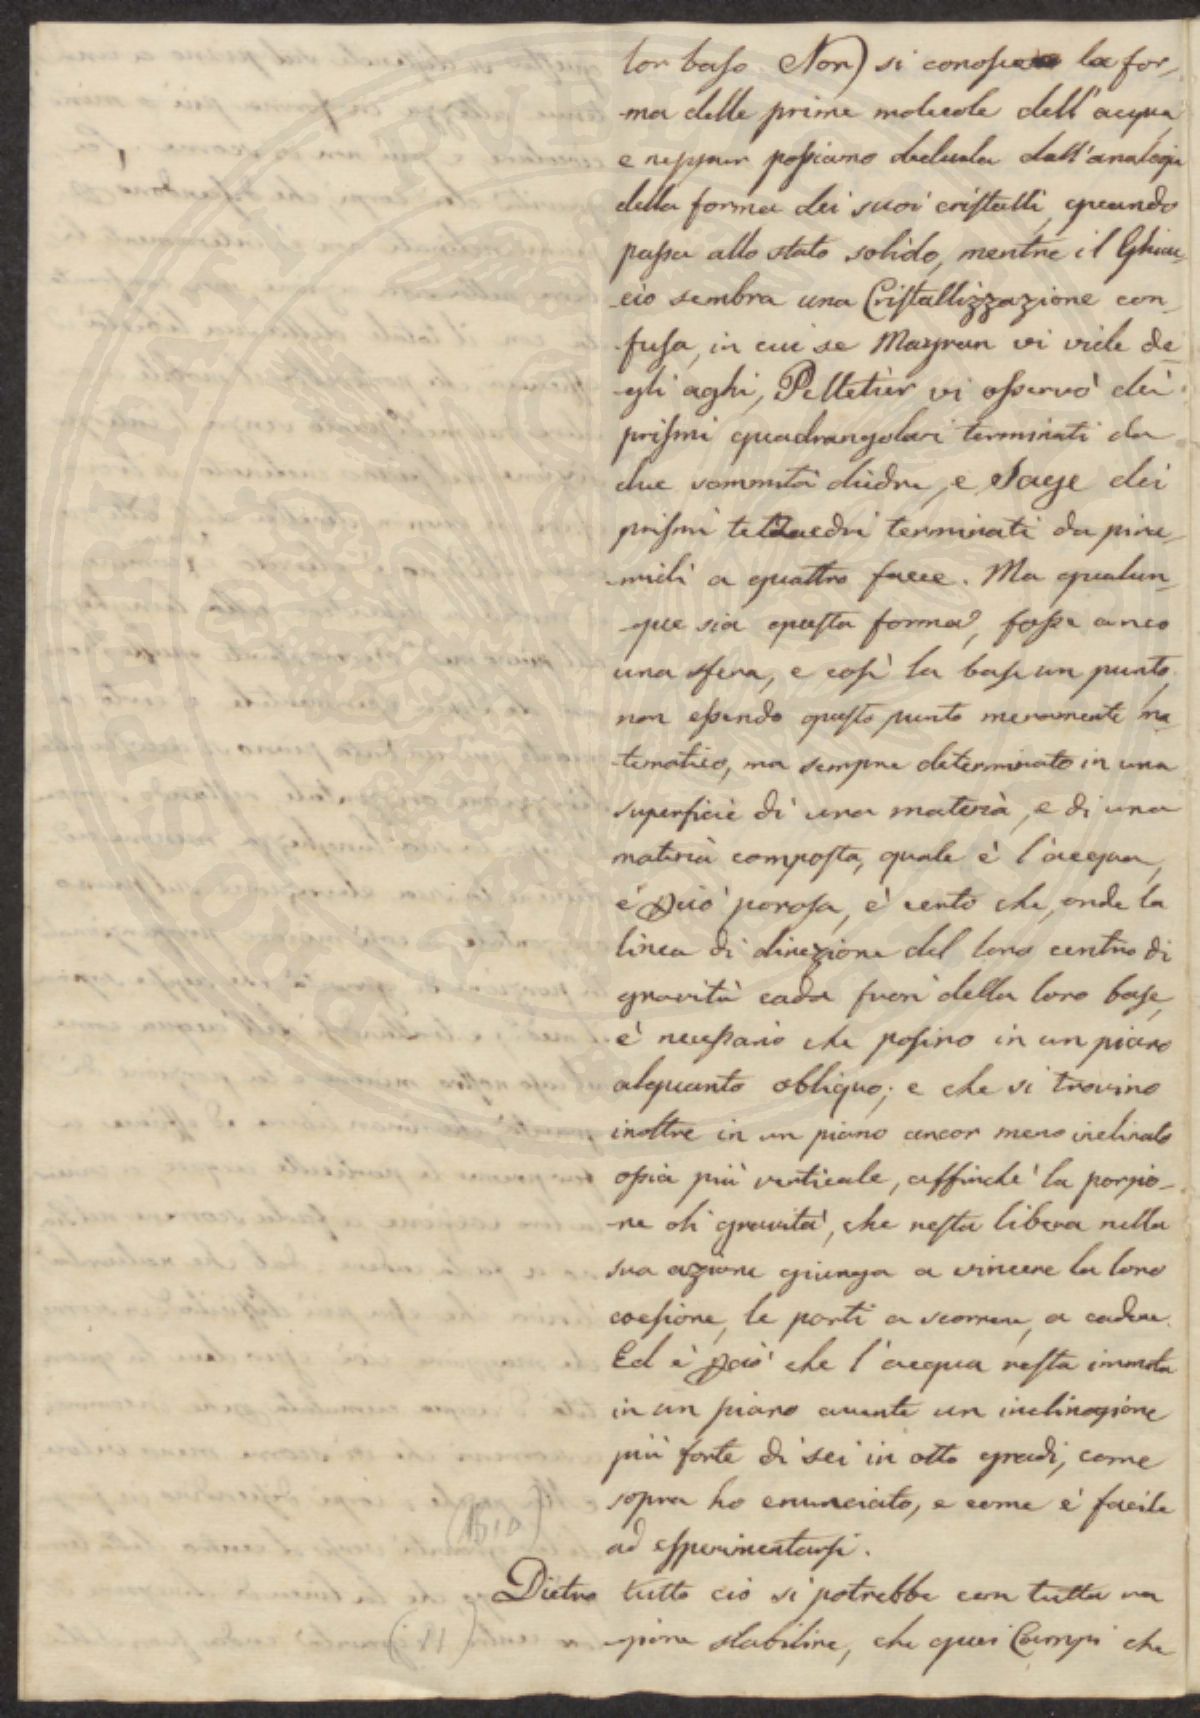 lor base. Non si conosce la for-
-ma delle prime molecole dell'acqua,
e neppur possiamo dedurla dall'analogia
della forma dei suoi cristalli, quando
passa allo stato solido, mentre il Ghiac-
-cio sembra una Cristallizzazione con-
-fusa, in cui se Mayran vi vide de-
-gli aghi, Pelletier vi osservò dei
prismi quadrangolari terminati da
due sommità diedre, e Sage dei
prismi tetraedri terminati da pira-
-midi a quattro facce. Ma qualun-
-que sia questa forma, fosse anco
una sfera, e così la base un punto,
non essendo questo punto meramente ma-
-tematico, ma sempre determinato in una
superficie di una materia, e di una
materia composta, quale è l'acqua,
e perciò porosa, è certo che, onde la
linea di direzione del loro centro di
gravità cada fuori della loro base,
è necessario che posino in un piano
alquanto obliquo; e che si trovino
inoltre in un piano ancor meno inclinato
ossia più verticale, affinchè la porzio-
-ne di gravità, che resta libera nella
sua azione giunga a vincere la loro
coesione, le parti a scorrere, a cadere.
Ed è perciò che l'acqua resta immota
in un piano avente un inclinazione
più forte di sei in otto gradi, come
sopra ho enunciato, e come è facile
ad esperimentarsi.
Dietro tutto ciò si potrebbe con tutta ra
-gione stabilire, che quei Campi che